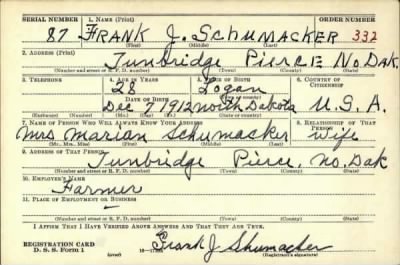 SERIAL NUMBER 1. NAME (Print) ORDER NUMBER
87 FRANK J. SCHUMACKER 332
(First) (Middle) (Last)
2. ADDRESS (Print)
Tunbridge Pierce No Dak.
(Number and street or R. F. D. number) (Town) (County) (State)
3. TELEPHONE 4. AGE IN YEARS 5. PLACE OF BIRTH 6. COUNTRY OF CITIZENSHIP
28 Logan
DATE OF BIRTH
Dec 7 1912 North Dakota U.S.A.
7. NAME OF PERSON WHO WILL ALWAYS KNOW YOUR ADDRESS 8. RELATIONSHIP OF THAT PERSON
Mrs Marian Schumacker wife
(Mr., Mrs., Miss) (First) (Middle) (Last)
9. ADDRESS OF THAT PERSON
Tunbridge Pierce. No. Dak
(Number and street or R. F. D. number) (Town) (County) (State)
10. EMPLOYER'S NAME
Farmer
11. PLACE OF EMPLOYMENT OR BUSINESS
(Number and street or R. F. D. number) (Town) (County) (State)
I AFFIRM THAT I HAVE VERIFIED ABOVE ANSWERS AND THAT THEY ARE TRUE.
REGISTRATION CARD
D. S. S. Form 1 (over) Frank J Shumacker
(Registrant's signature)